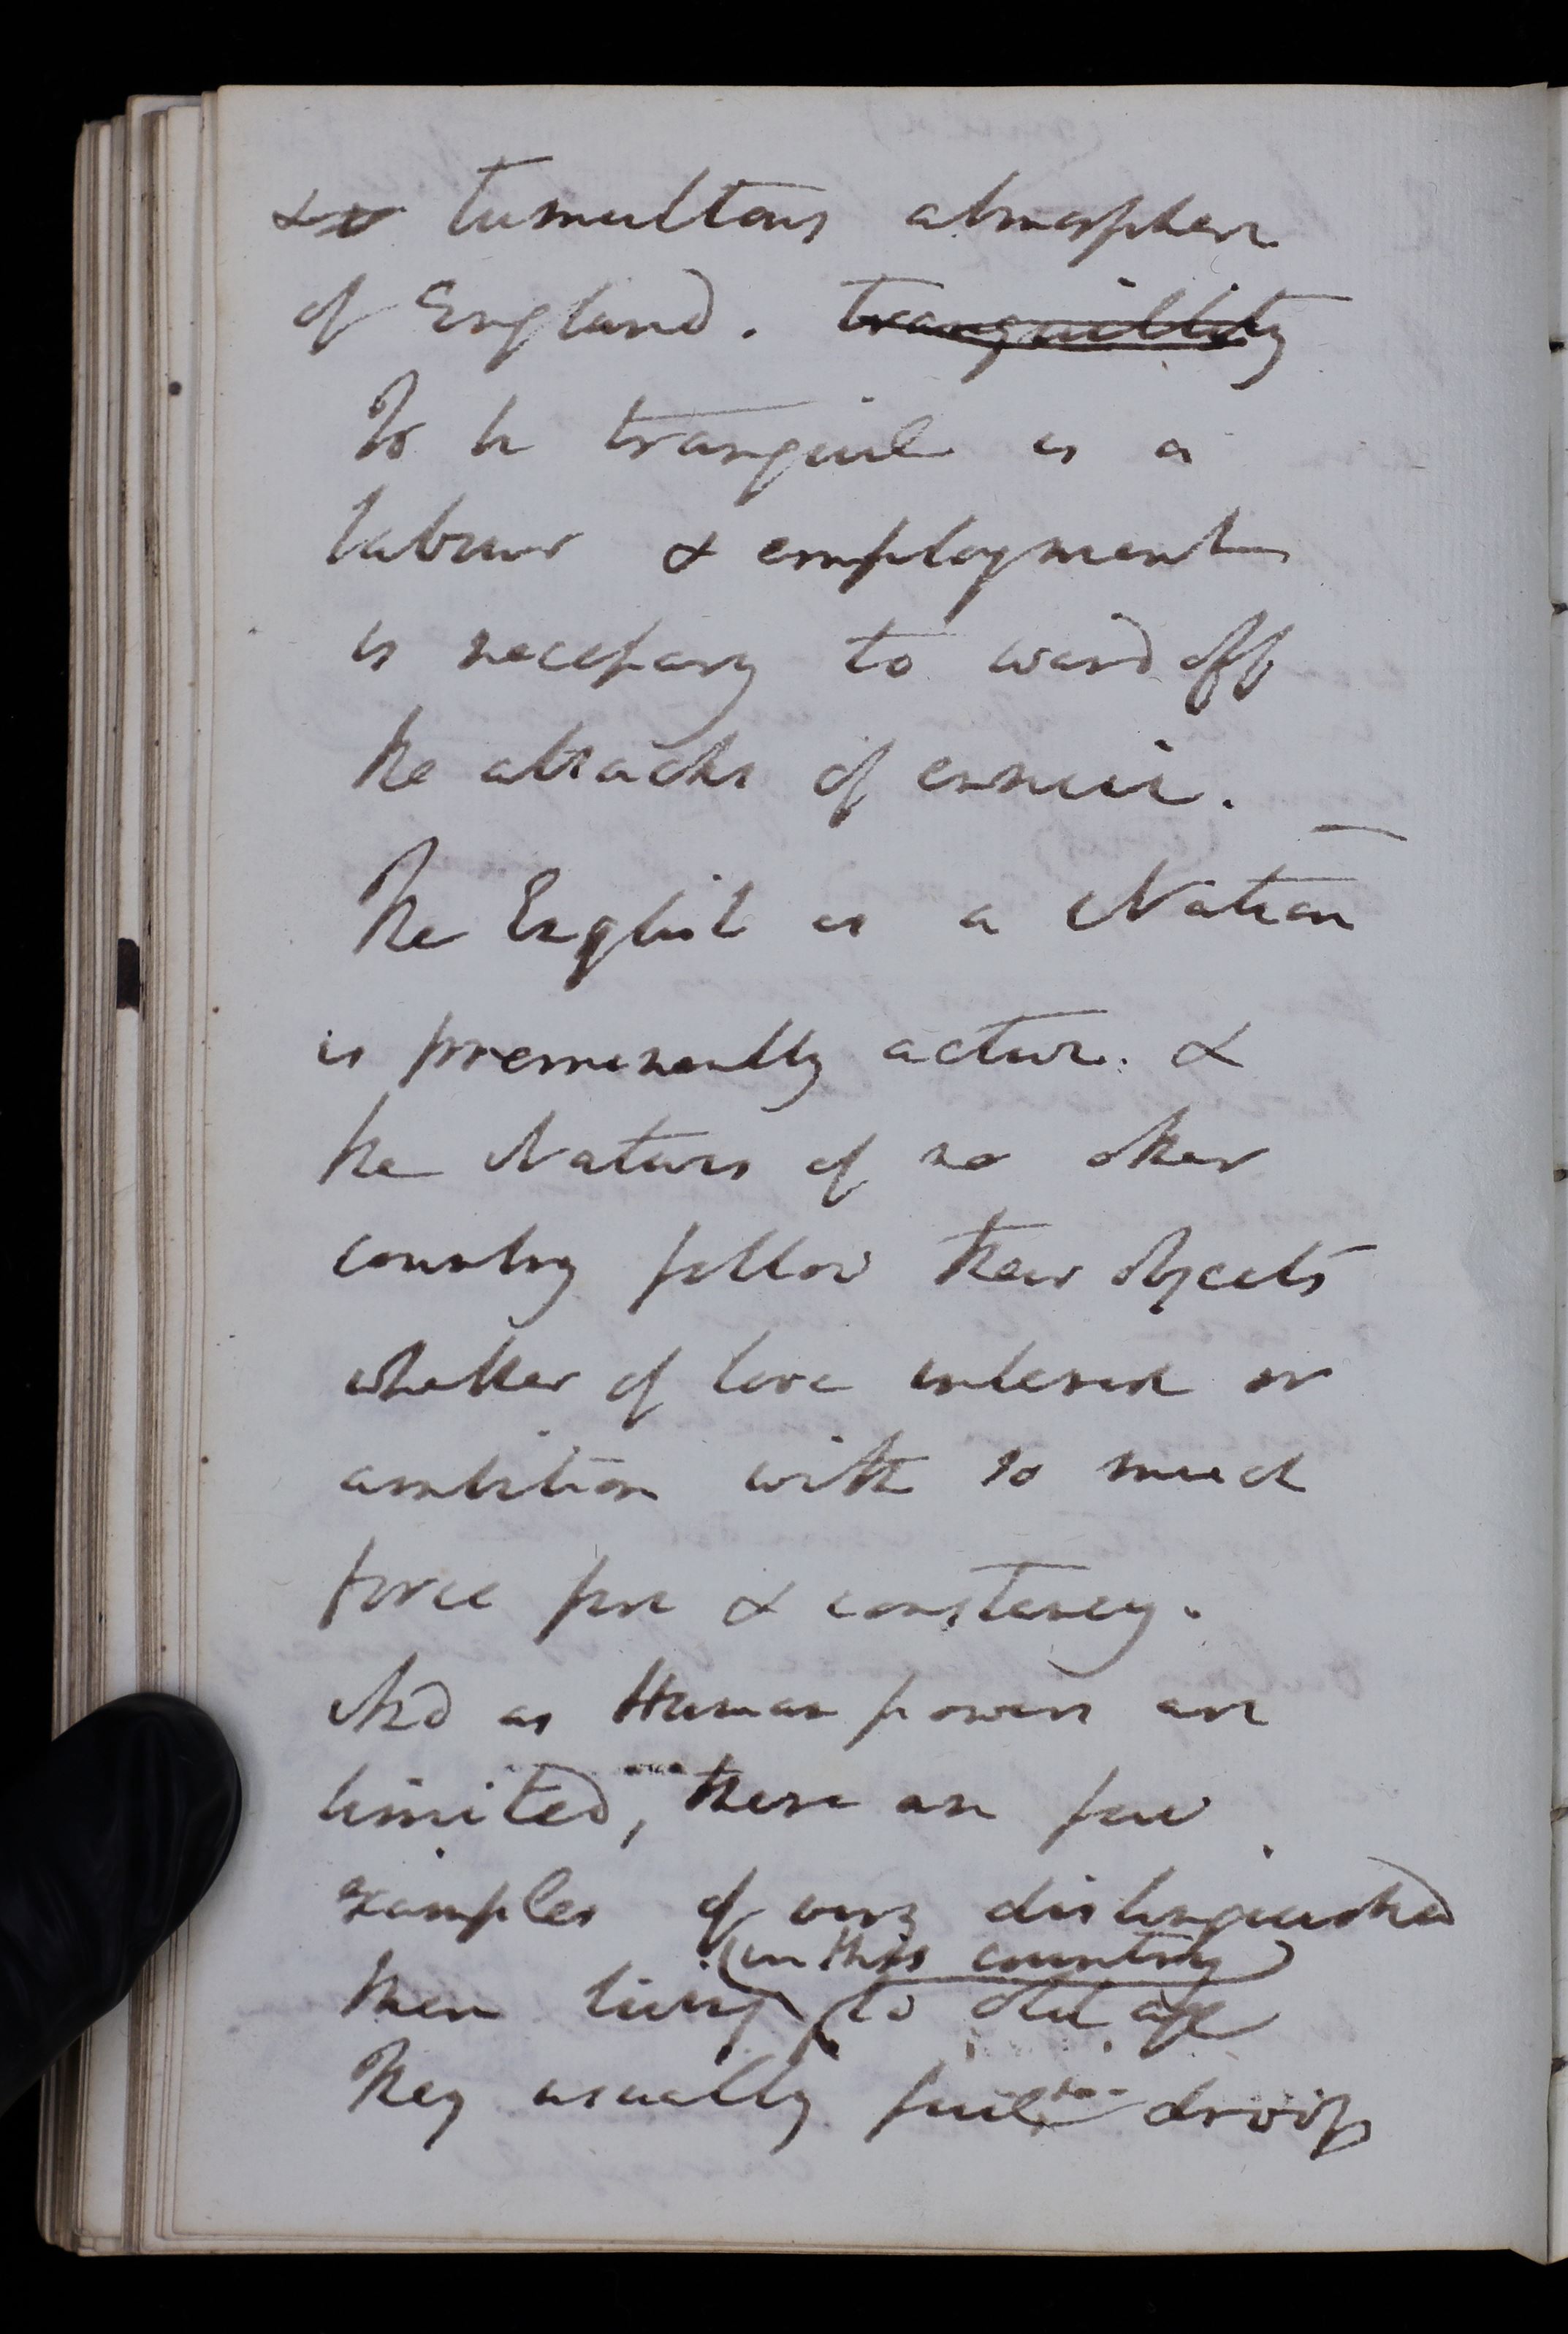 & tumultous atmosphere
of England. tranquillity
To be tranquil is a
labour & employment
is necessary to ward off
the attacks of ennui.
The English as a Nation
is preeminently active. &
the Natives of no other
country follow their objects
whether of love interest or
ambition with so much
force fire & constancy.
And as Human powers are
limited, there are few
examples of very distinguished
(in this country)
Men living to old age
They usually fail droop